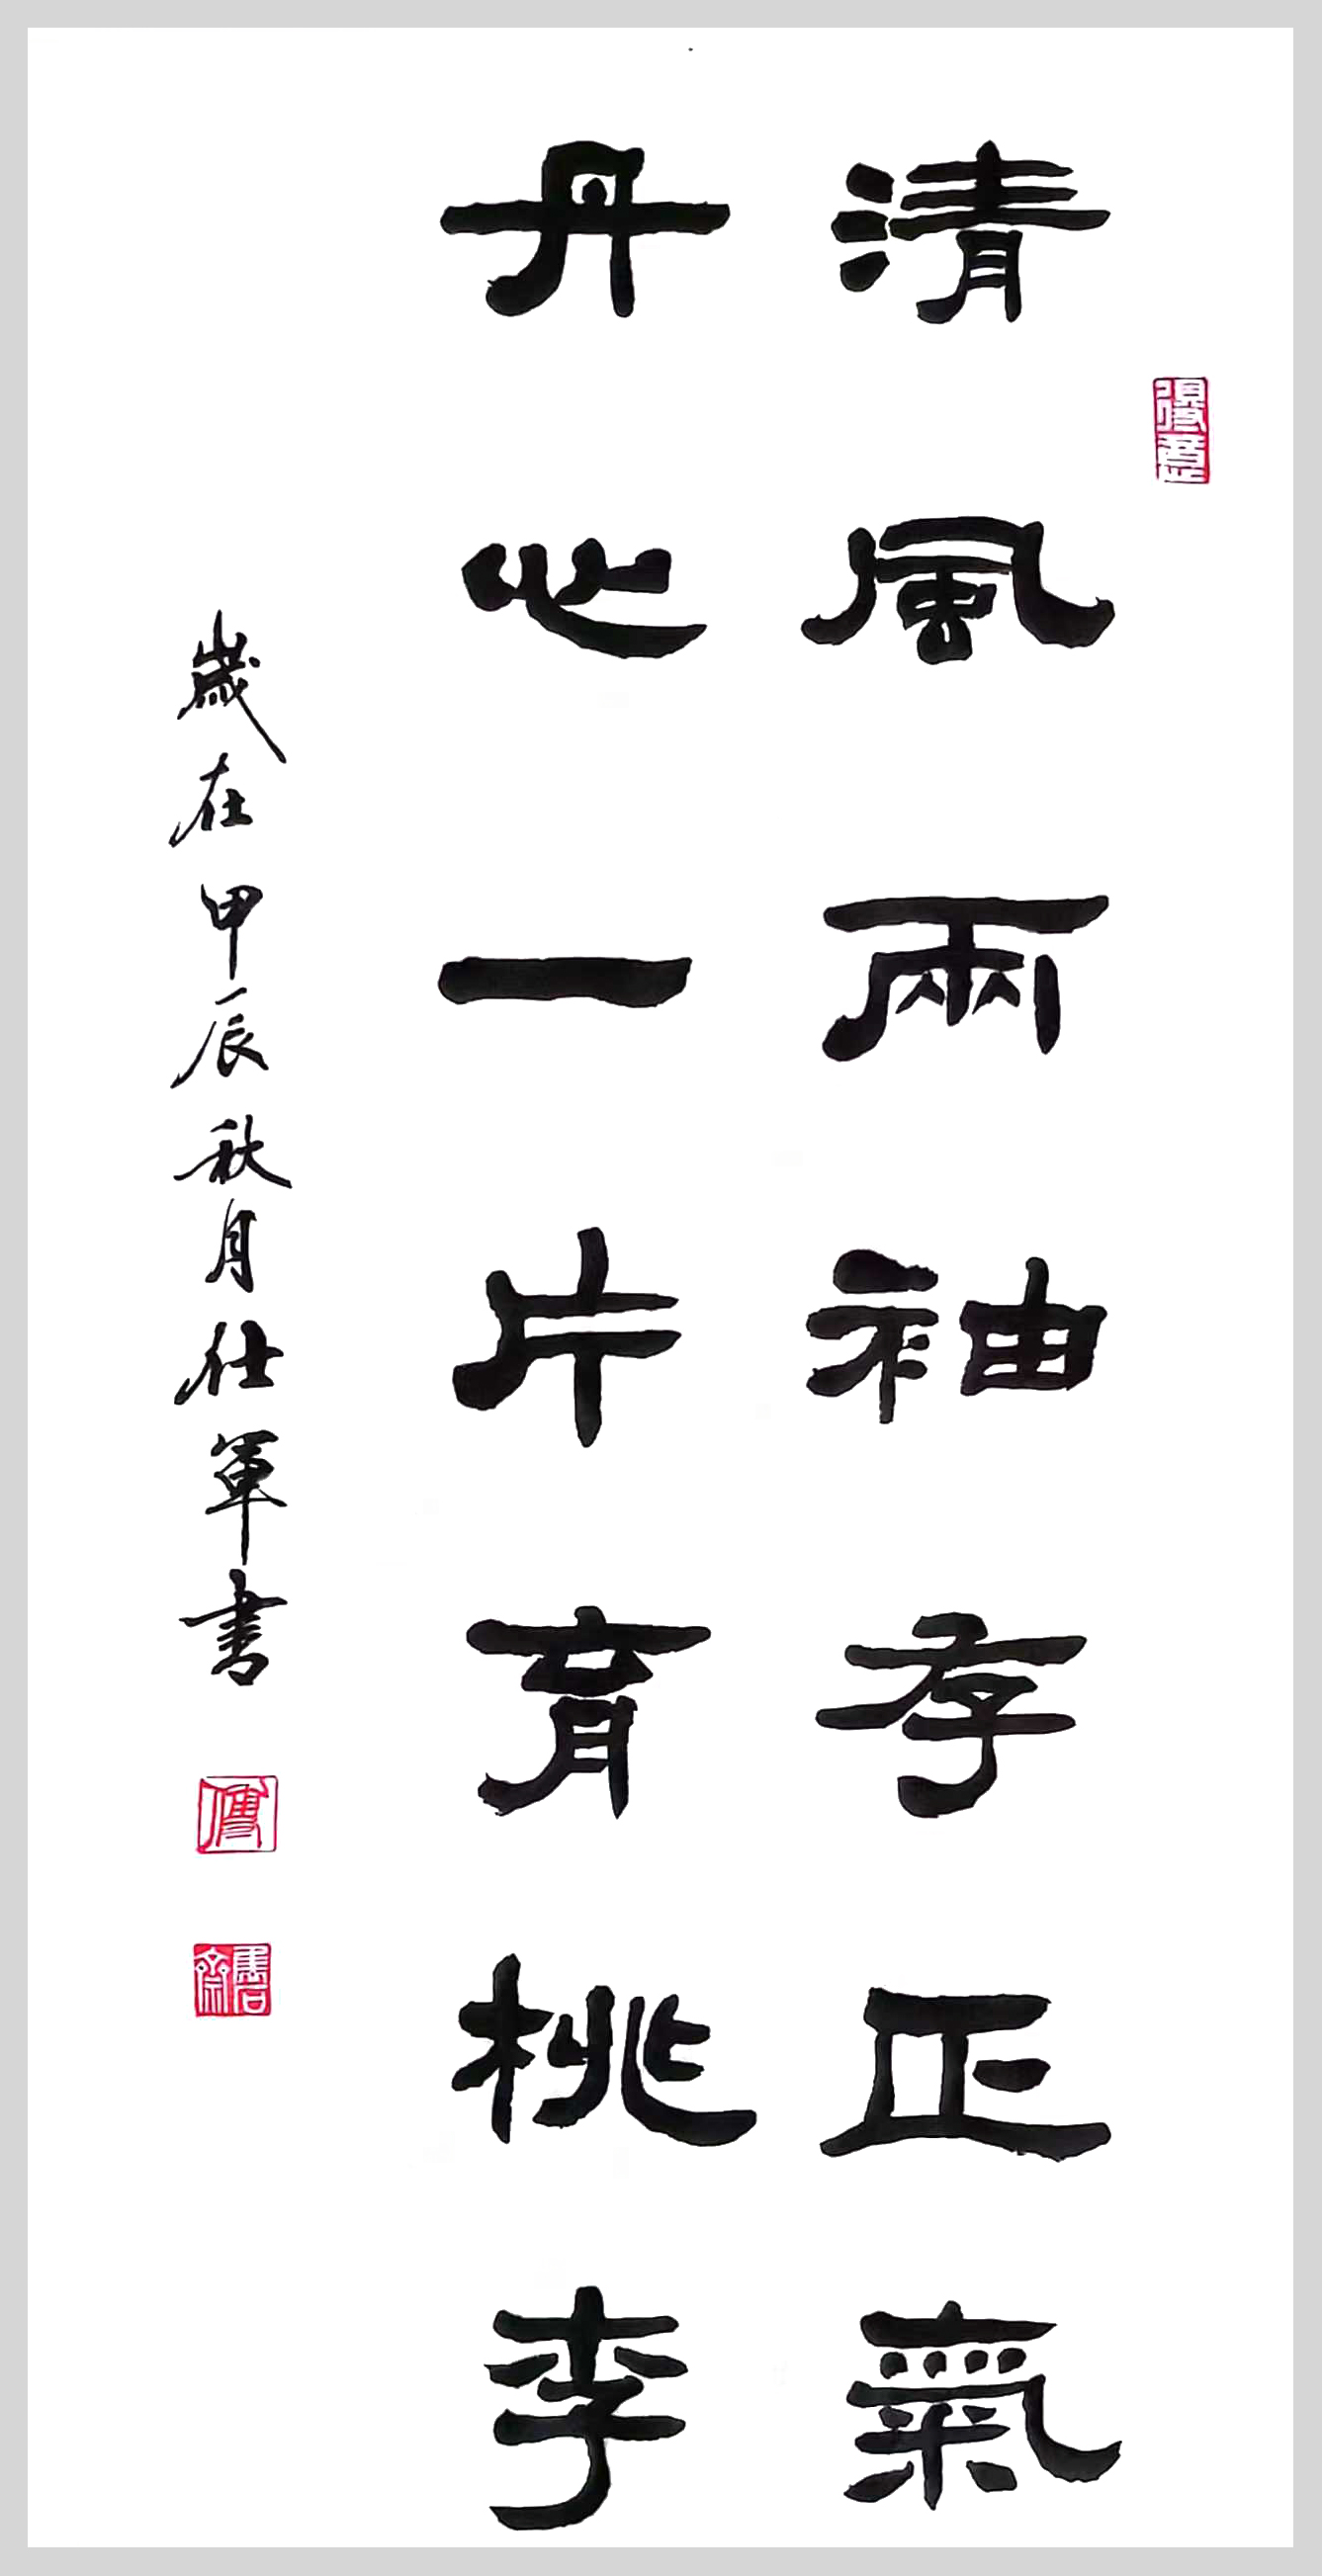 清風兩袖存正氣
丹心一片育桃李
歲在甲辰秋月仕軍书
得意
傅